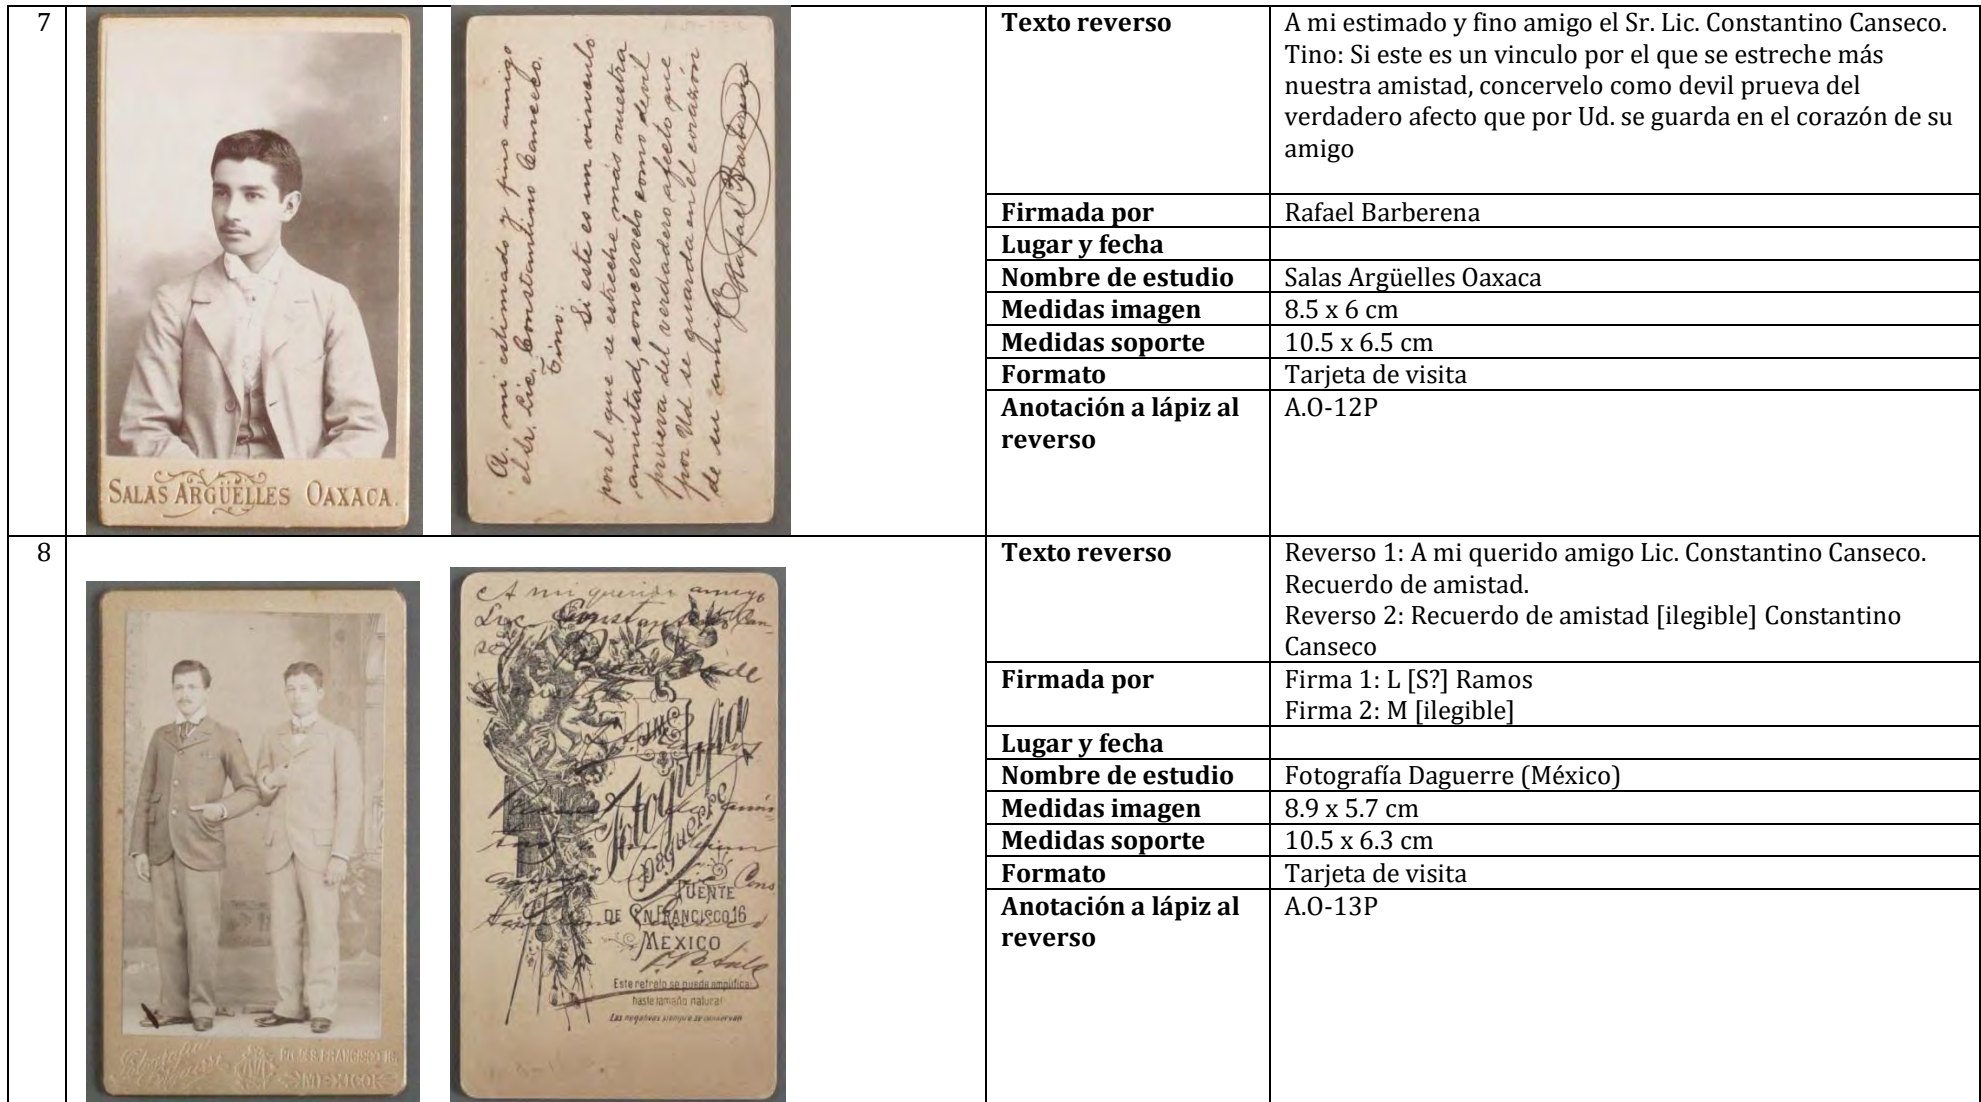 7
SALAS ARGÜELLES OAXACA.
A. mi estimado y fino amigo
el Sr. Lic. Constantino Canseco.
Tino:
Si este es un vinculo
por el que se estreche más nuestra
amistad, concervelo como devil
prueva del verdadero afecto que
por Ud se guarda en el corazón
de su amigo
Rafael Barberena
Texto reverso
A mi estimado y fino amigo el Sr. Lic. Constantino Canseco.
Tino: Si este es un vinculo por el que se estreche más
nuestra amistad, concervelo como devil prueva del
verdadero afecto que por Ud. se guarda en el corazón de su
amigo
Firmada por
Rafael Barberena
Lugar y fecha
Nombre de estudio
Salas Argüelles Oaxaca
Medidas imagen
8.5 x 6 cm
Medidas soporte
10.5 x 6.5 cm
Formato
Tarjeta de visita
Anotación a lápiz al
reverso
A.O-12P
8
Fotografia
Daguerre
PTE DE S. FRANCISCO 16.
MEXICO
A mi querido amigo
Lic. Constantino Can-
Fotografia
Daguerre
PUENTE
DE SN FRANCISCO 16
MEXICO
Este retrato se puede amplificar
hasta tamaño natural
Las negativas siempre se conservan
Texto reverso
Reverso 1: A mi querido amigo Lic. Constantino Canseco.
Recuerdo de amistad.
Reverso 2: Recuerdo de amistad [ilegible] Constantino
Canseco
Firmada por
Firma 1: L [S?] Ramos
Firma 2: M [ilegible]
Lugar y fecha
Nombre de estudio
Fotografía Daguerre (México)
Medidas imagen
8.9 x 5.7 cm
Medidas soporte
10.5 x 6.3 cm
Formato
Tarjeta de visita
Anotación a lápiz al
reverso
A.O-13P